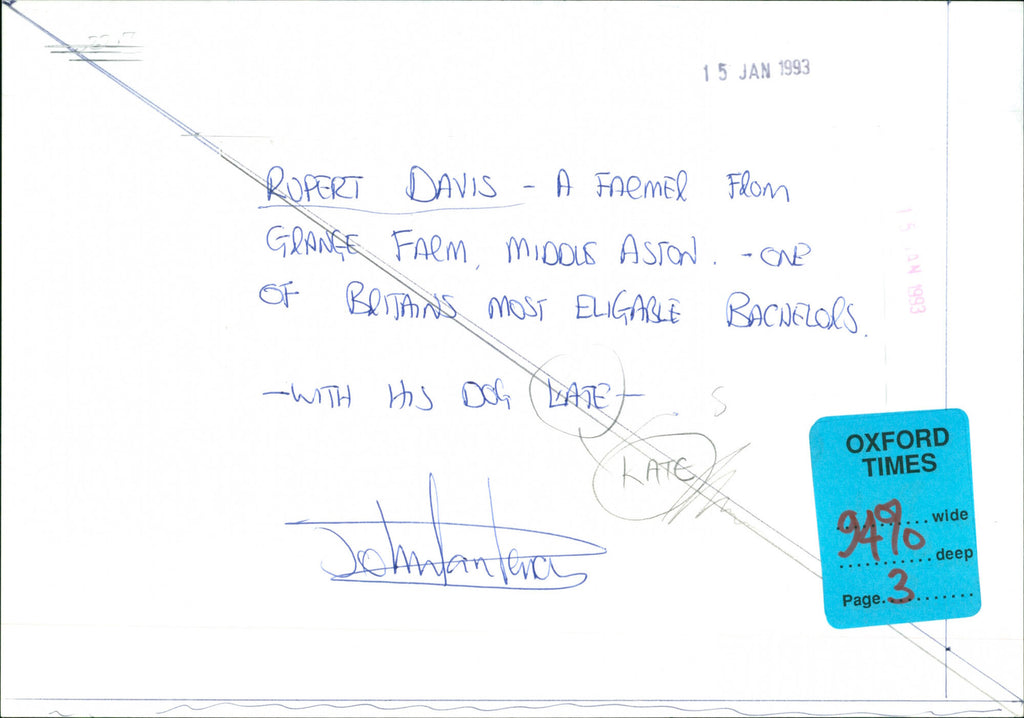 15 JAN 1993
RUPERT DAVIS - A FARMER FROM
GRANGE FARM, MIDDLE ASTON. - ONE
OF BRITAINS MOST ELIGABLE BACHELORS.
- WITH HIS DOG KATE -
KATE
S
15 JAN 1993
OXFORD
TIMES
94% wide
deep
Page. 3